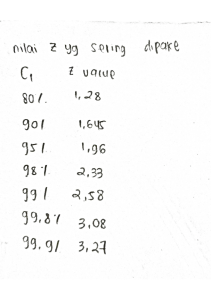 nilai z yg sering dipake
C1 z value
80% 1,28
90% 1,645
95% 1,96
98% 2,33
99% 2,58
99,8% 3,08
99,9% 3,27